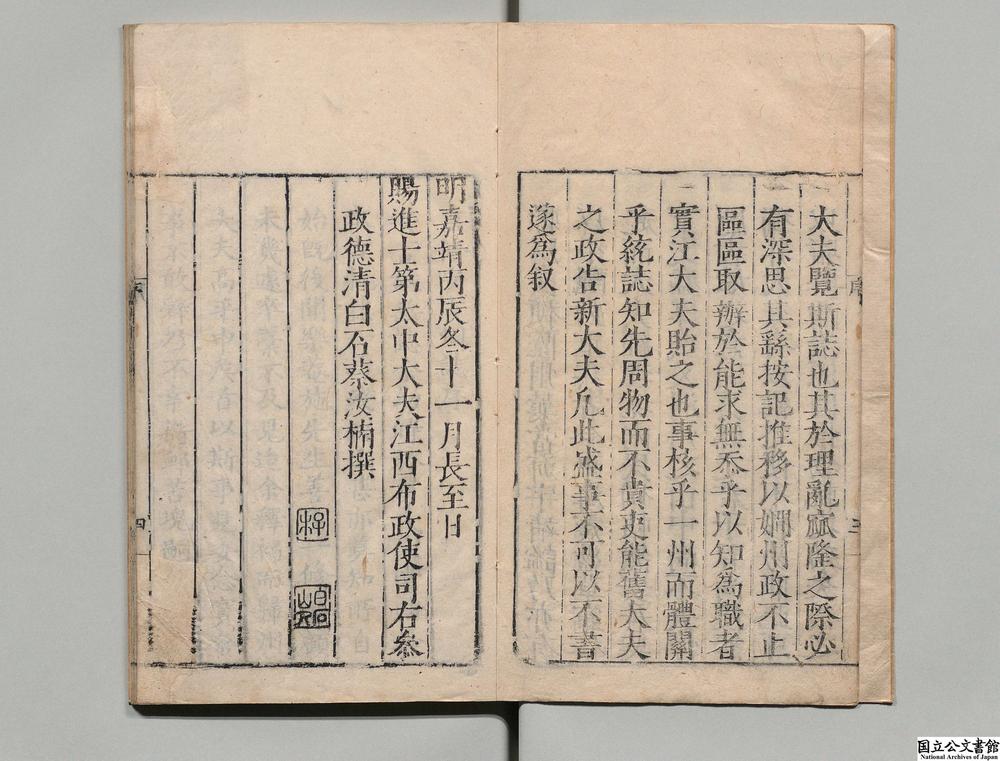 大夫覽斯誌也其於理亂窳隆之際必
有深思其繇按記推移以嫺州政不止
區區取辦於能求無忝乎以知為職者
實江大夫貽之也事核乎一州而體關
乎統誌知先周物而不貴吏能舊大夫
之政告新大夫凡此盛事不可以不書
遂為叙
序
三
明嘉靖丙辰冬十一月長至日
賜進士第太中大夫江西布政使司右叅
政德清白石蔡汝楠撰
序
四
国立公文書館
National Archives of Japan